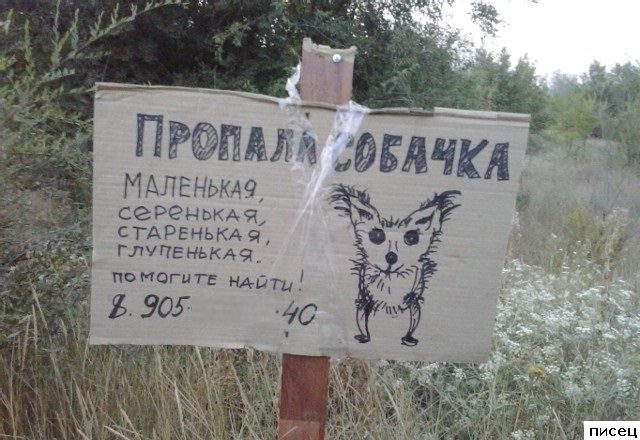 ПРОПАЛА СОБАЧКА
МАЛЕНЬКАЯ,
СЕРЕНЬКАЯ,
СТАРЕНЬКАЯ,
ГЛУПЕНЬКАЯ..
ПОМОГИТЕ НАЙТИ!
8. 905. .40
писец